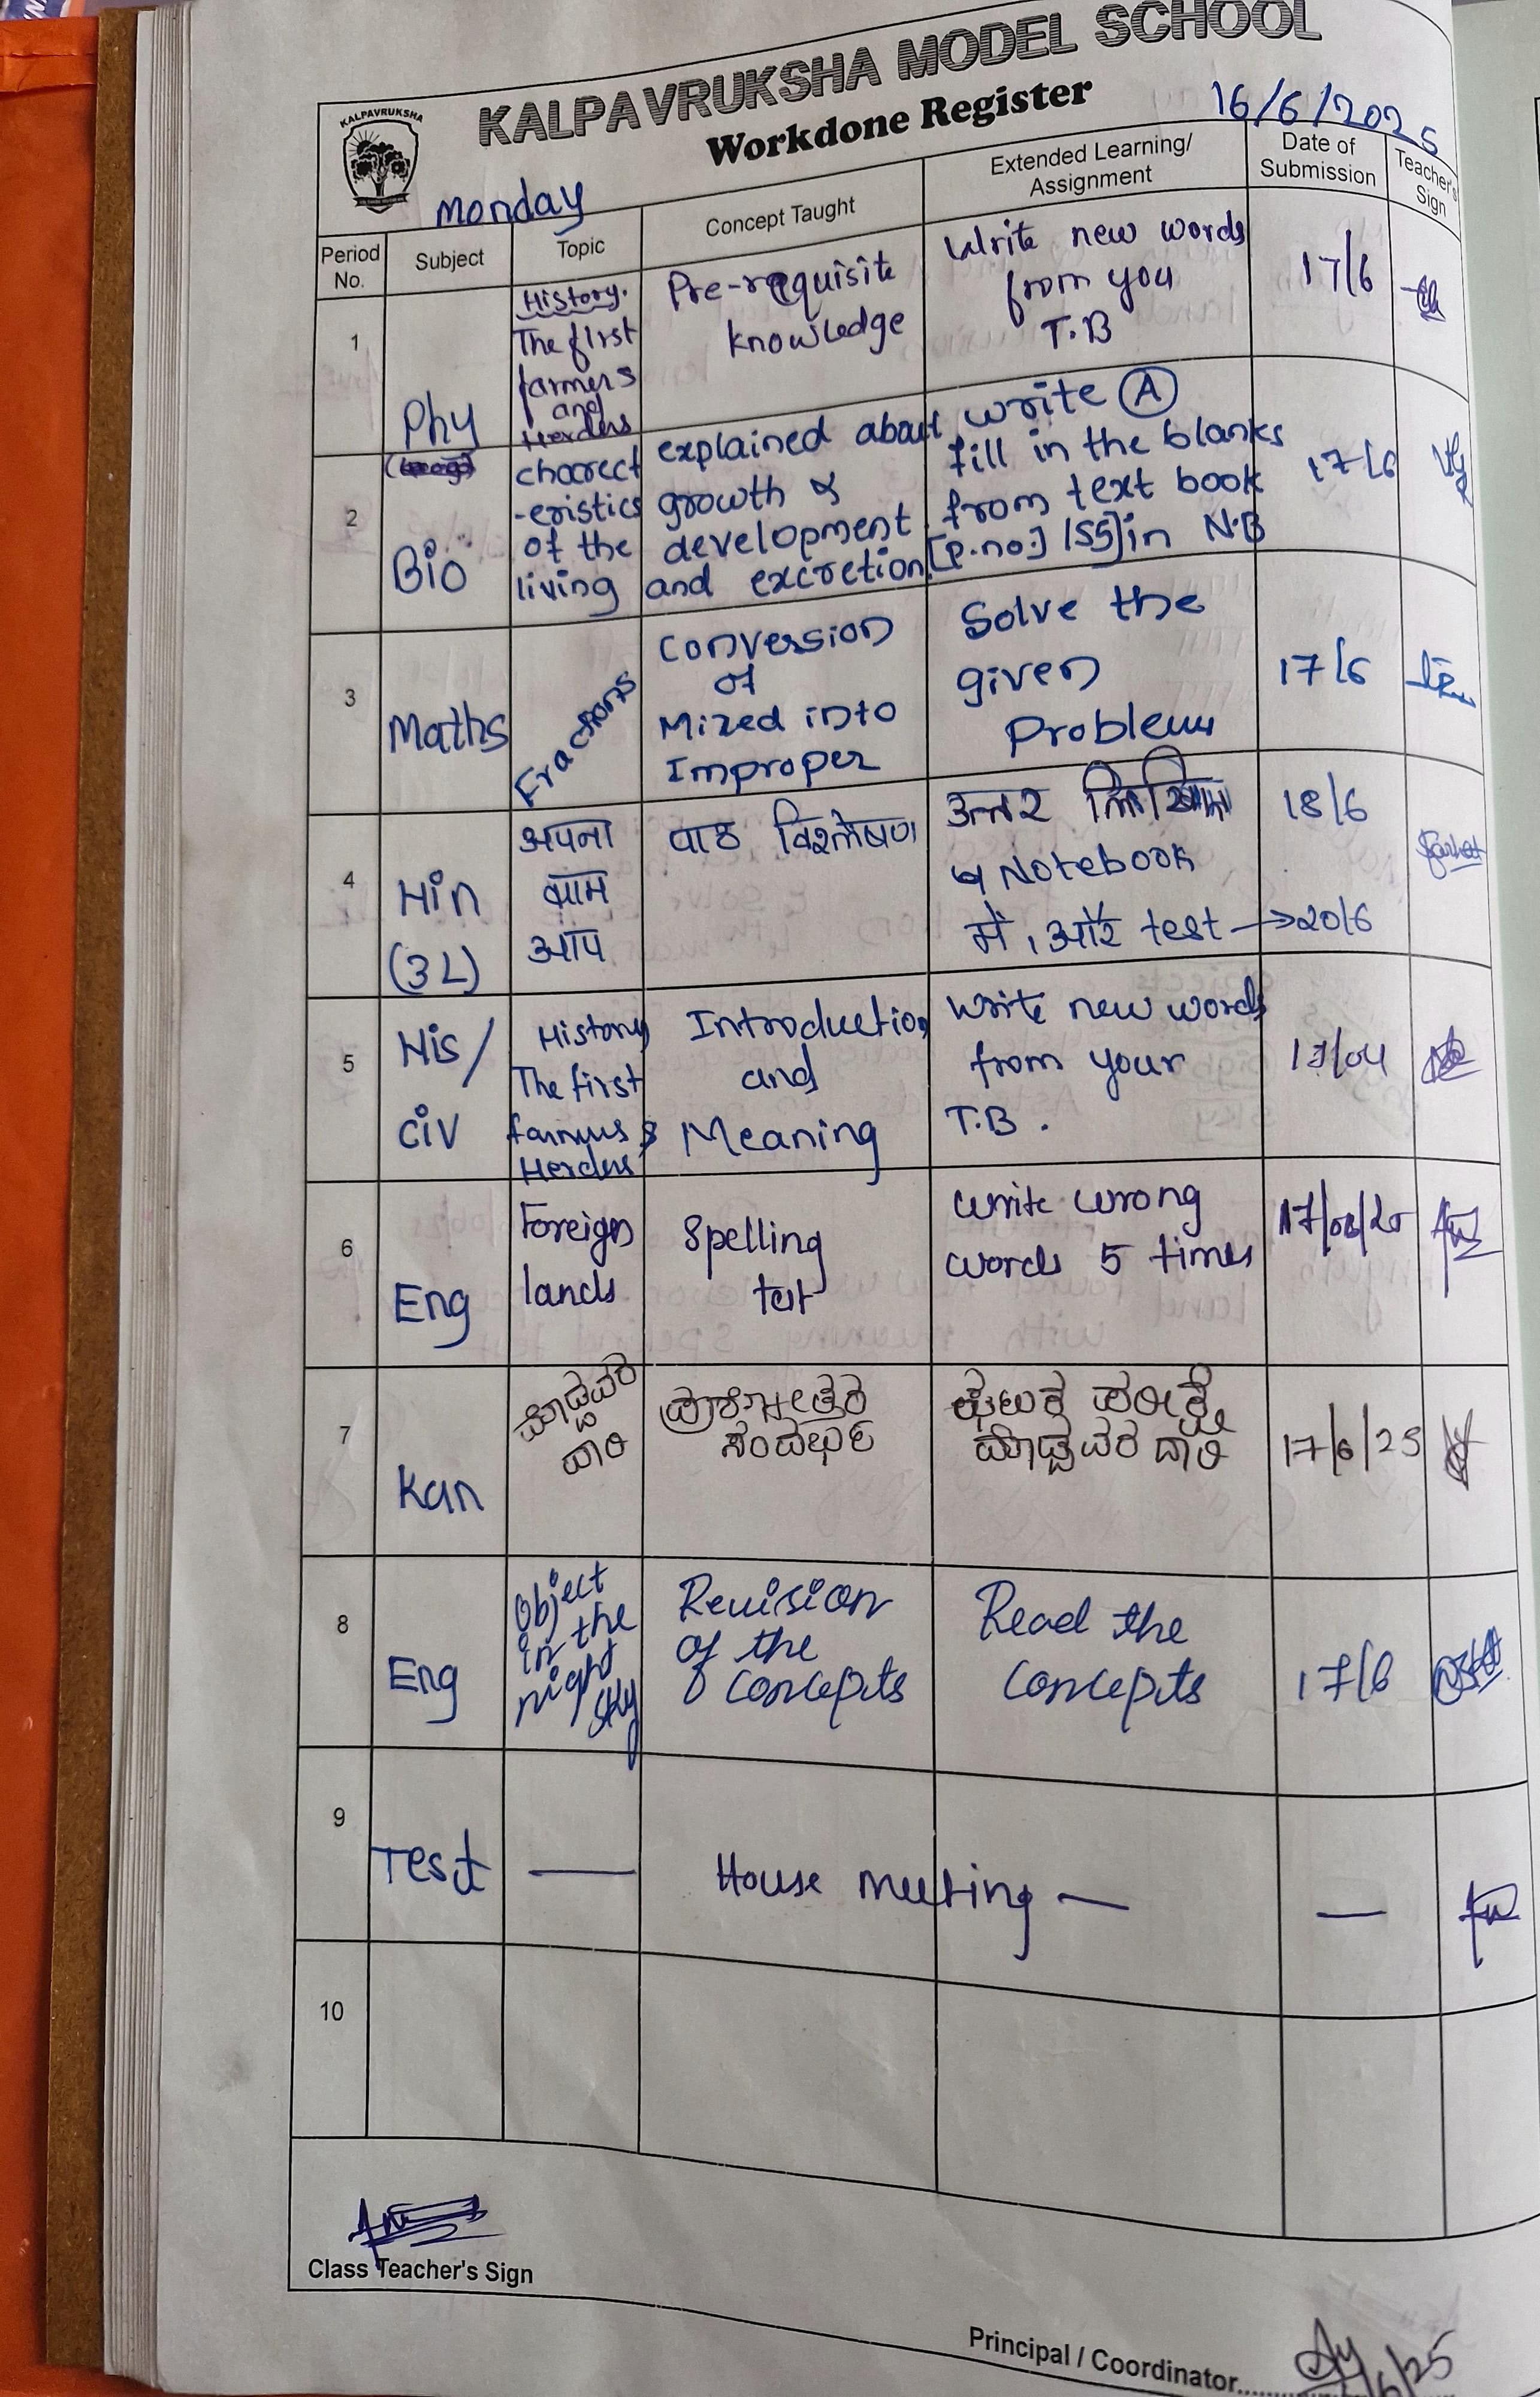 KALPAVRUKSHA MODEL SCHOOL
KALPAVRUKSHA
Workdone Register
16/6/2025
Monday
Period No.
Subject
Topic
Concept Taught
Extended Learning/ Assignment
Date of Submission
Teacher's Sign
1
Phy
History.
The first
farmers
and
Herders
Pre-requisite
knowledge
Write new words
from you
T.B
17/6
2
Bio
charect
-eristics
of the
living
explained about
growth &
development
and excretion.
write (A)
fill in the blanks
from text book
[P.no.] 155] in N.B
17/6
3
Maths
Fractions
Conversion
of
Mixed into
Improper
Solve the
given
Problems
17/6
4
Hin
(3L)
अपना
काम
आप
पाठ विश्लेषण
उत्तर
Notebook
में, और test →20/6
18/6
5
His/
civ
History
The first
farmers &
Herders
Introduction
and
Meaning
Write new words
from your
T.B.
17/04
6
Eng
Foreign
lands
Spelling
test
write wrong
words 5 times
17/06/25
7
Kan
ದಾರಿ
ಸಂದರ್ಭ
ದಾರಿ
17/6/25
8
Eng
Object
in the
night
sky
Revision
of the
concepts
Read the
concepts
17/6
9
Test
—
House meeting —
—
10
Class Teacher's Sign
Principal / Coordinator..........